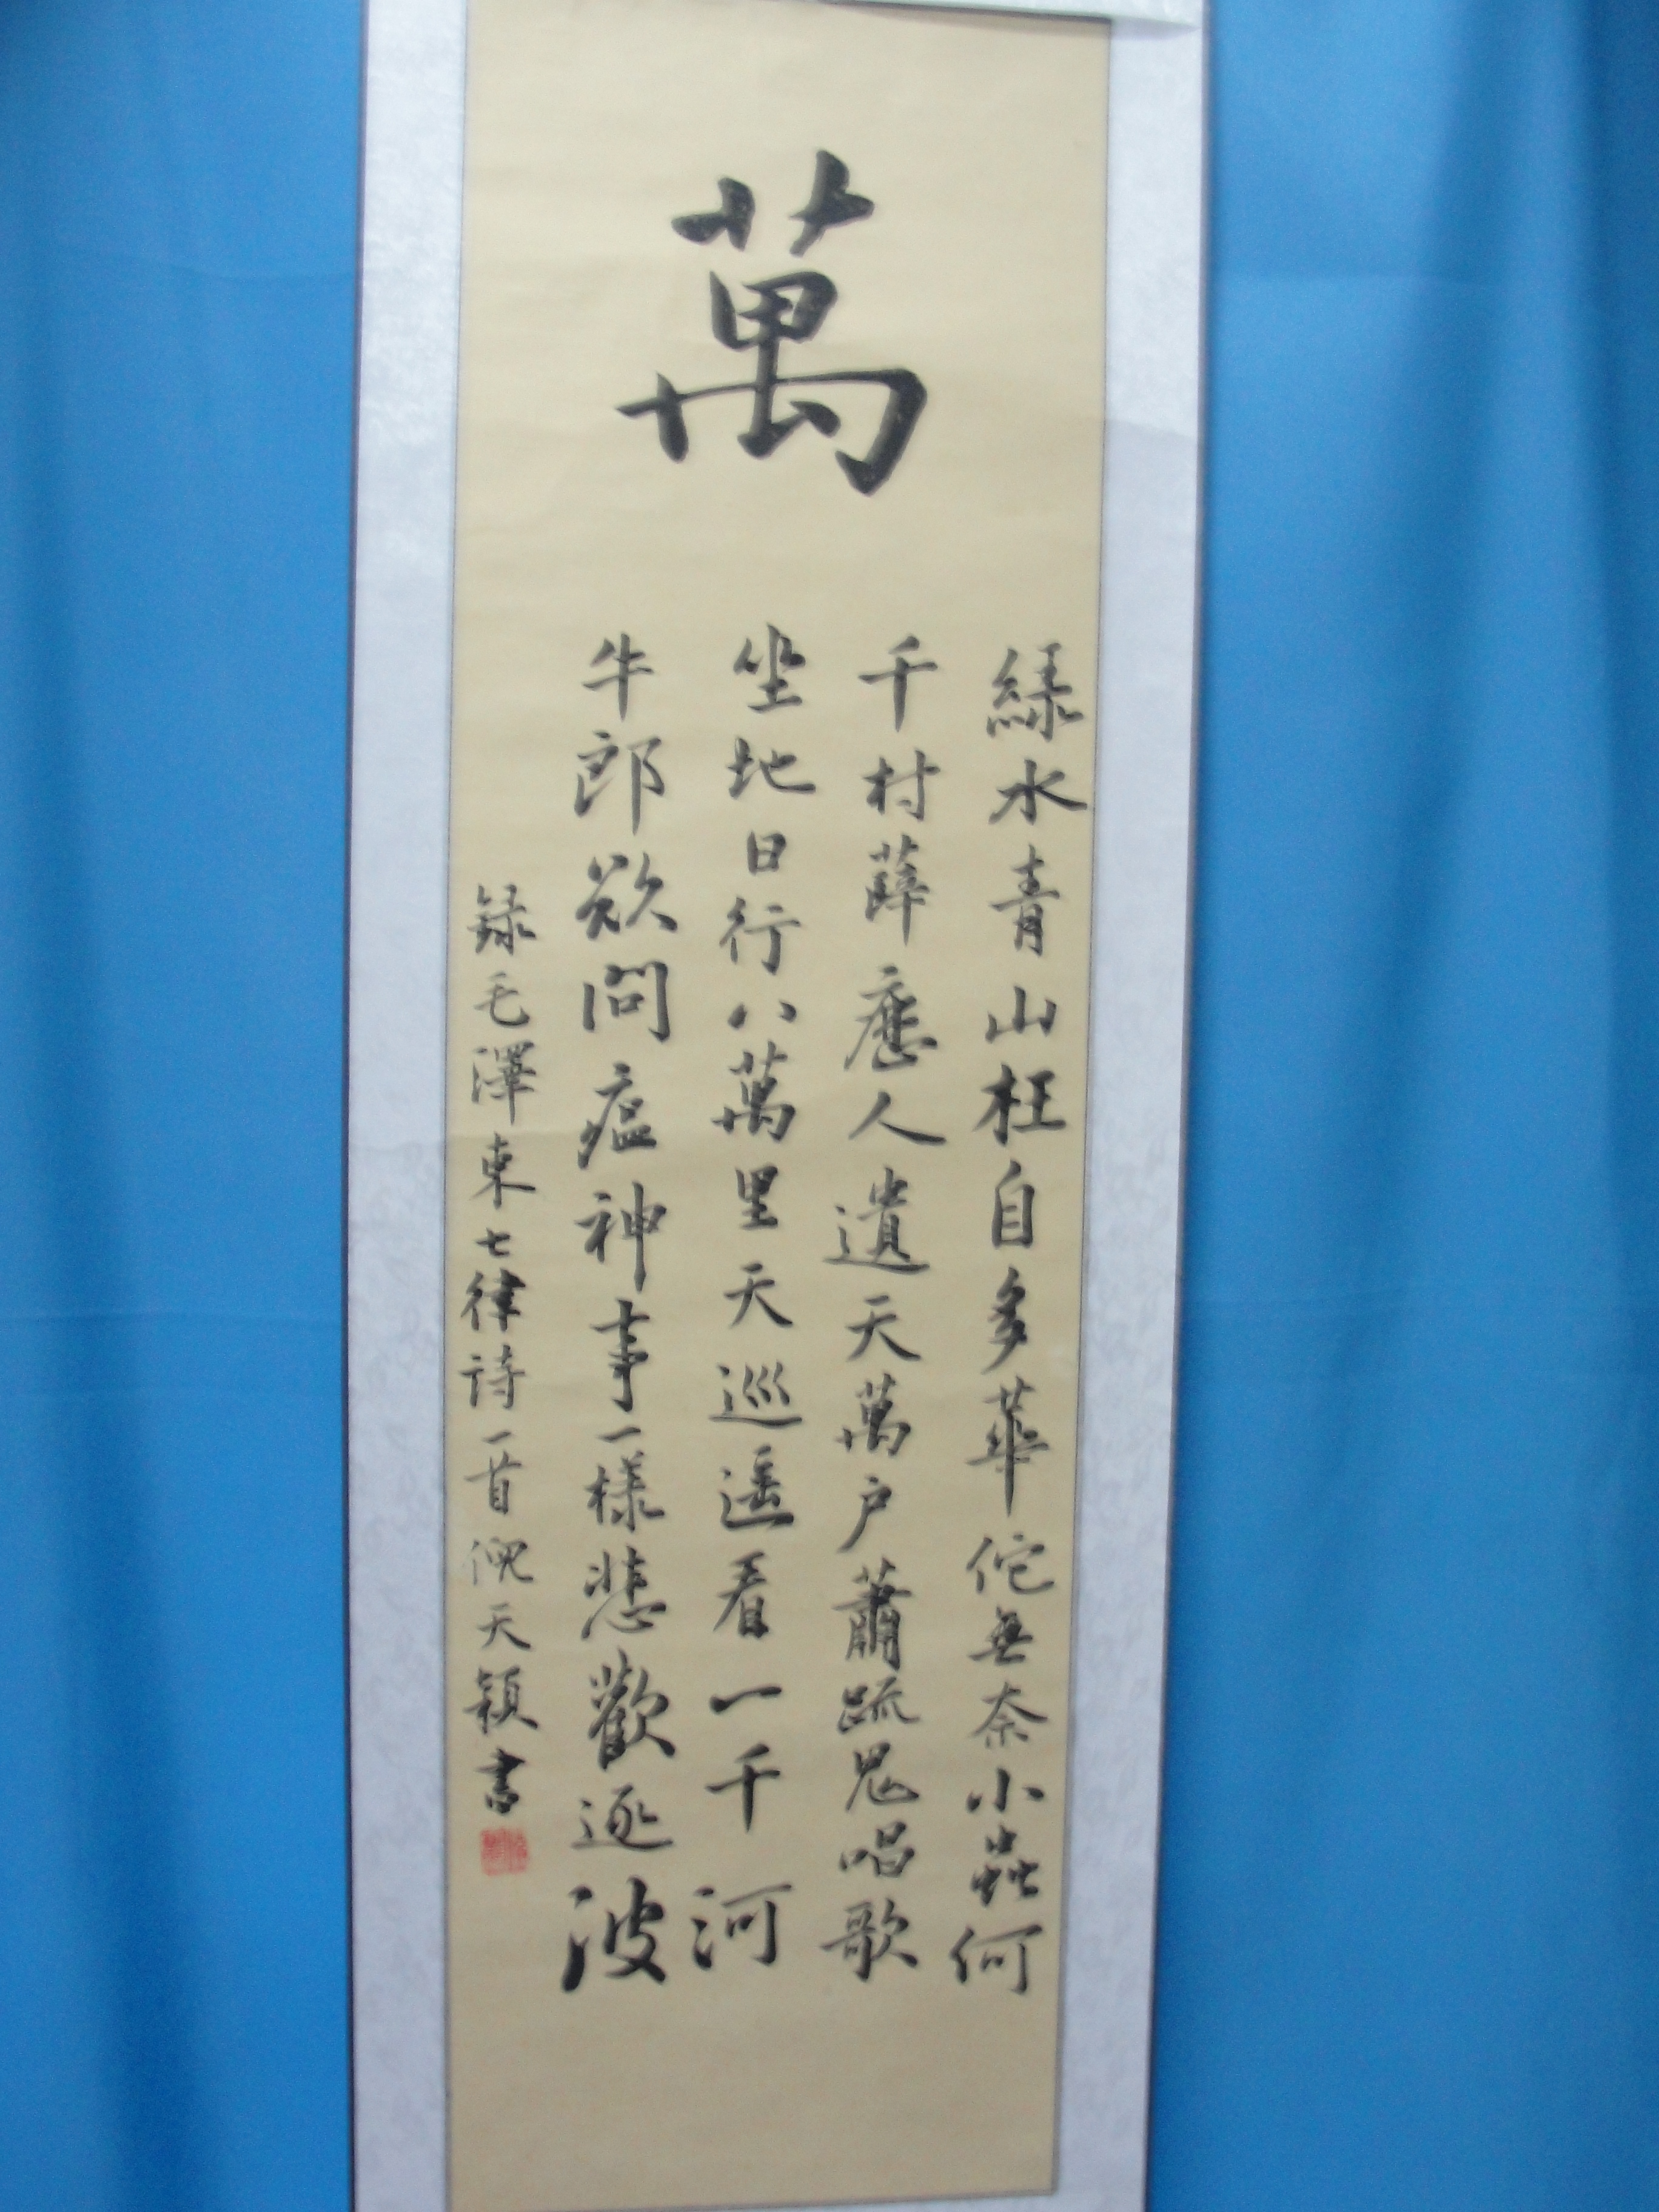 萬
緑水青山枉自多華佗無奈小蟲何
千村薜癧人遺天萬户蕭疏鬼唱歌
坐地日行八萬里天巡遥看一千河
牛郎欲問瘟神事一樣悲歡逐波
録毛澤東七律詩一首倪天頴書